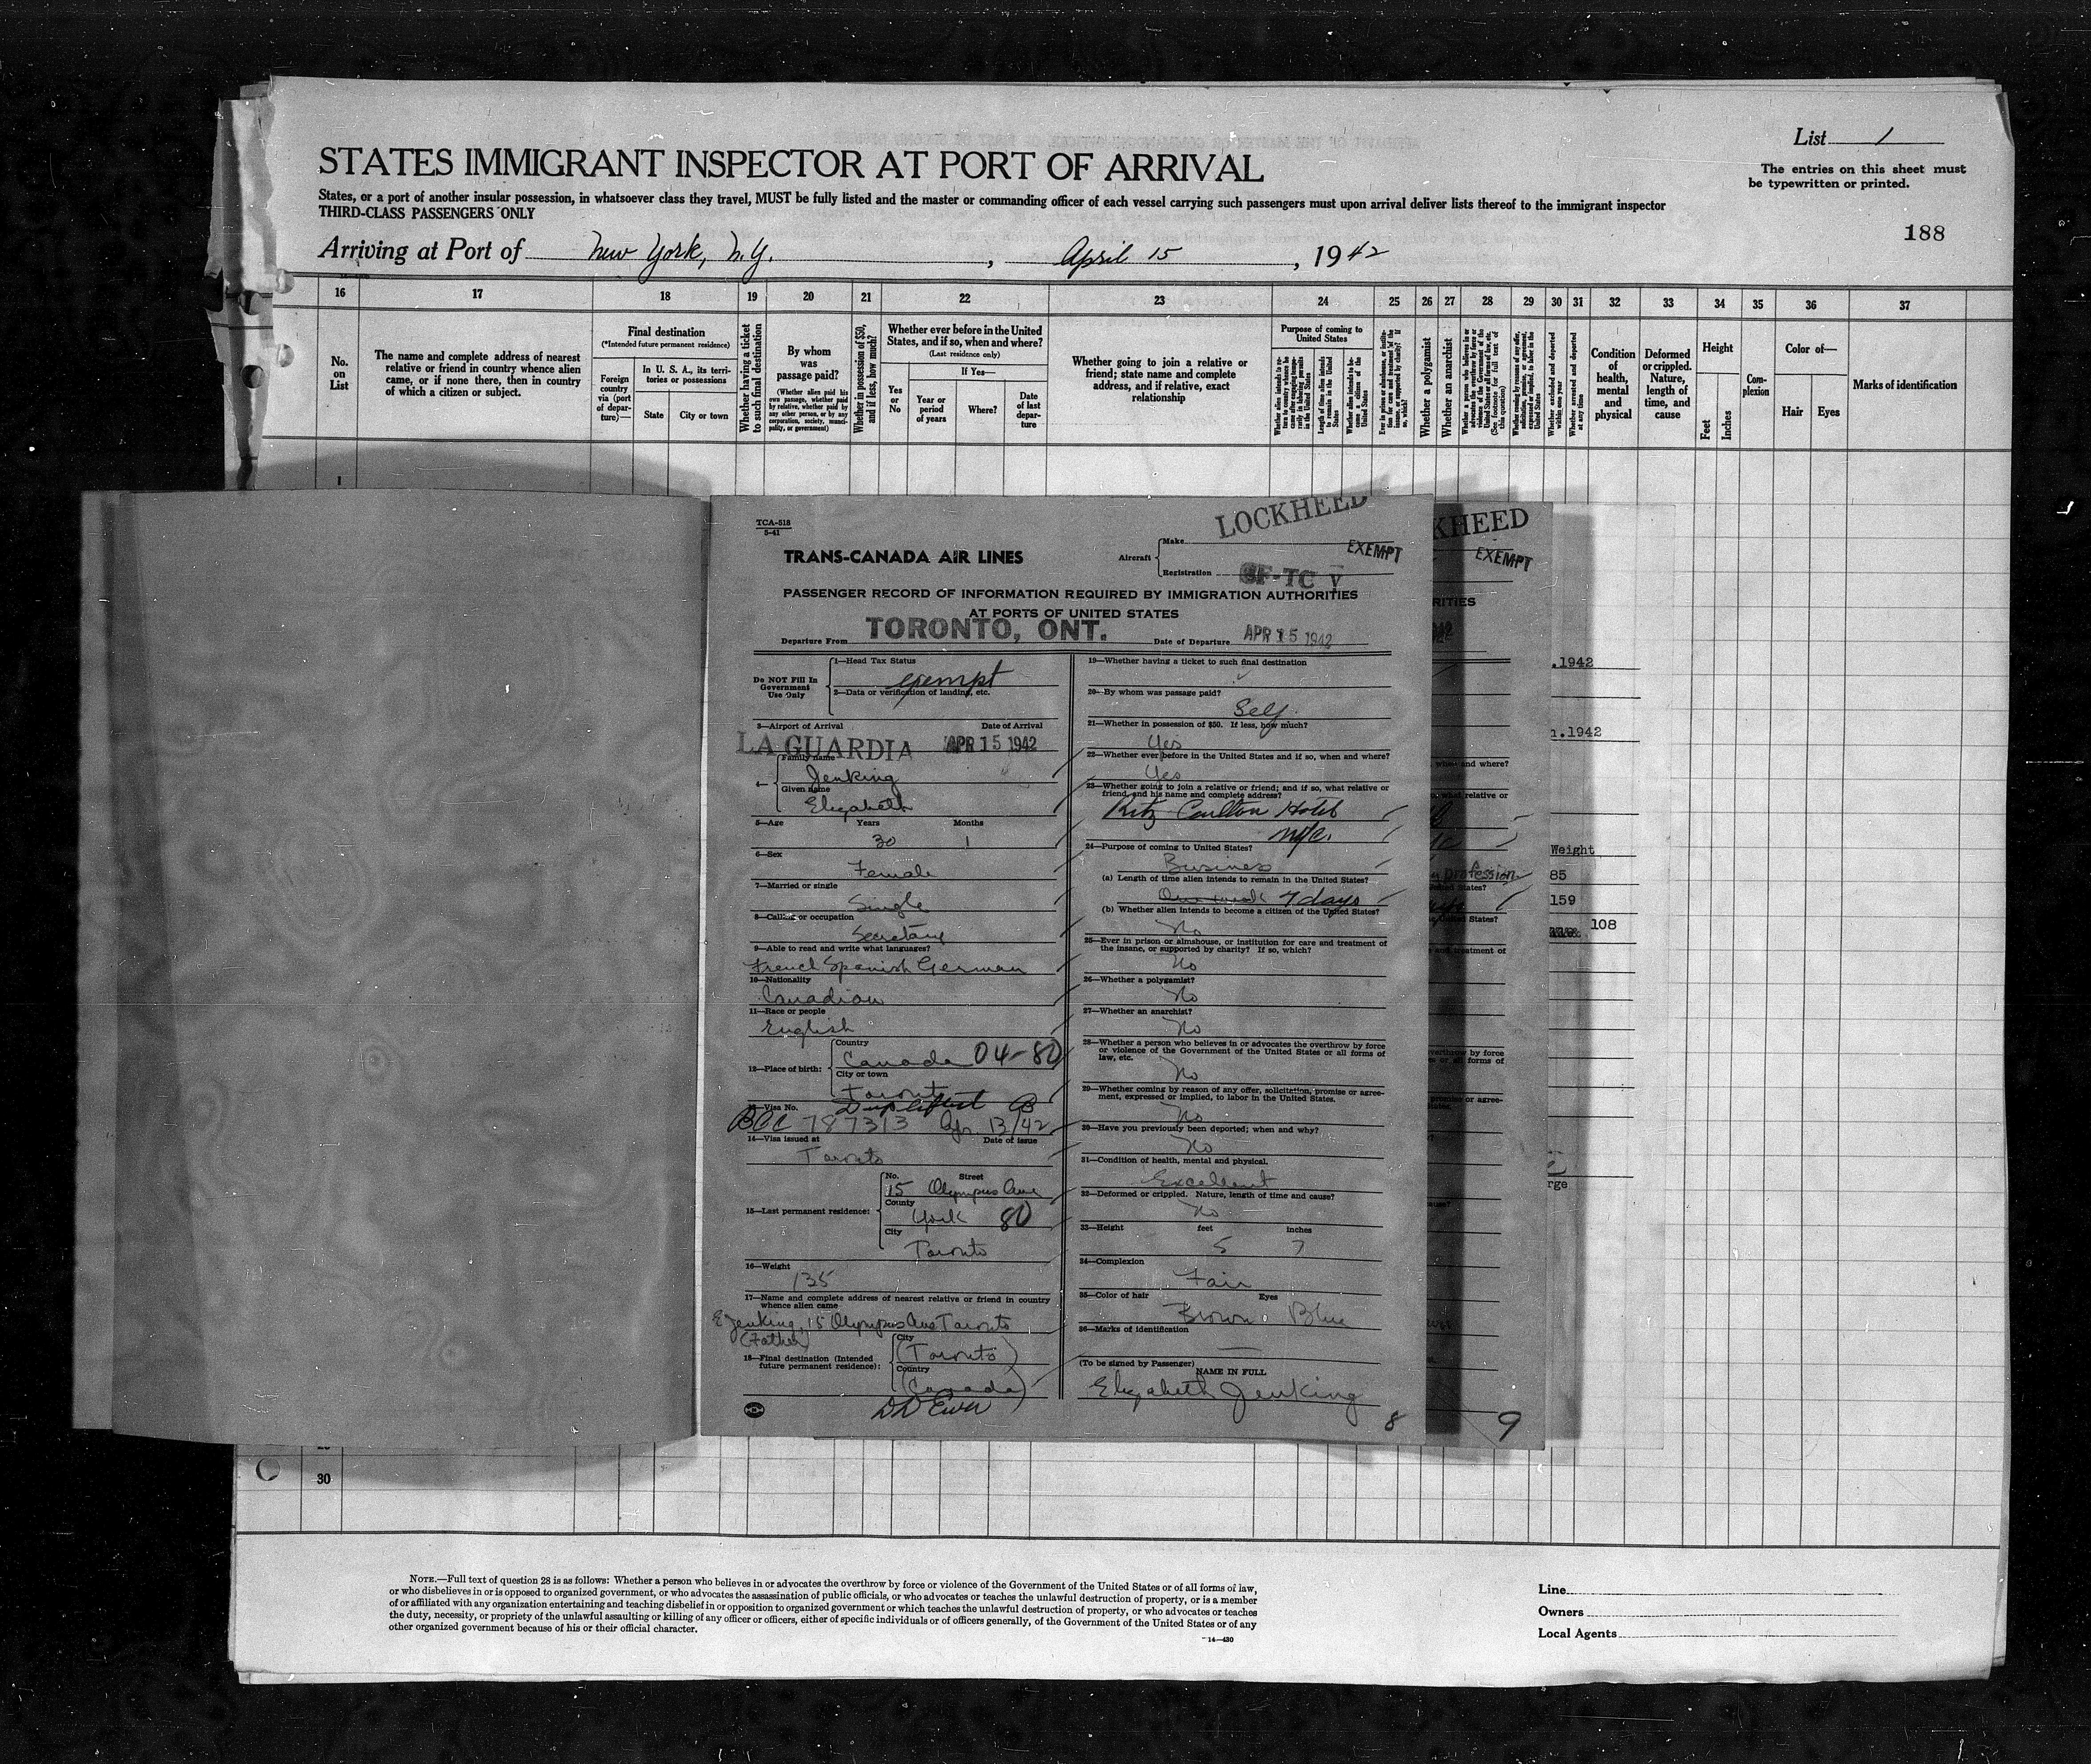 List 1
STATES IMMIGRANT INSPECTOR AT PORT OF ARRIVAL
The entries on this sheet must
be typewritten or printed.
States, or a port of another insular possession, in whatsoever class they travel, MUST be fully listed and the master or commanding officer of each vessel carrying such passengers must upon arrival deliver lists thereof to the immigrant inspector
THIRD-CLASS PASSENGERS ONLY
188
Arriving at Port of New York, N.Y., April 15, 1942
16 17 18 19 20 21 22 23 24 25 26 27 28 29 30 31 32 33 34 35 36 37
No. on List
The name and complete address of nearest
relative or friend in country whence alien
came, or if none there, then in country
of which a citizen or subject.
Final destination
(*Intended future permanent residence)
Foreign country via (port of departure)—
In U. S. A., its territories or possessions
State
City or town
Whether having a ticket to such final destination
By whom was passage paid?
(Whether alien paid his own passage, whether paid by relative, whether paid by any other person, or by any corporation, society, municipality, or government)
Whether in possession of $50, and if less, how much?
Whether ever before in the United States, and if so, when and where?
(Last residence only)
Yes or No
If Yes—
Year or period of years
Where?
Date of last departure
Whether going to join a relative or
friend; state name and complete
address, and if relative, exact
relationship
Purpose of coming to United States
Length of time alien intends to remain in the United States
Whether a polygamist
Whether an anarchist
Whether arrested and deported at any time
Condition of health, mental and physical
Deformed or crippled. Nature, length of time, and cause
Height
Feet
Inches
Complexion
Color of—
Hair
Eyes
Marks of identification
1
TCA-518
5-41
TRANS-CANADA AIR LINES
Aircraft
Make LOCKHEED
EXEMPT
Registration CF-TC V
PASSENGER RECORD OF INFORMATION REQUIRED BY IMMIGRATION AUTHORITIES
AT PORTS OF UNITED STATES
Departure From TORONTO, ONT. Date of Departure APR 15 1942
Do NOT Fill In
Government
Use Only
1—Head Tax Status
exempt
2—Data or verification of landing, etc.
3—Airport of Arrival Date of Arrival
LA GUARDIA APR 15 1942
4— Family name
Jenking
Given name
Elizabeth
5—Age Years Months
30 1
6—Sex
Female
7—Married or single
Single
8—Calling or occupation
Secretary
9—Able to read and write what languages?
French Spanish German
10—Nationality
Canadian
11—Race or people
English
12—Place of birth:
Country
Canada 04-80
City or town
Toronto
13—Visa No.
BCC 787313 Apr. 13/42
14—Visa issued at Date of issue
Toronto
15—Last permanent residence:
No. Street
15 Olympus Ave
County
York 80
City
Toronto
16—Weight
135
17—Name and complete address of nearest relative or friend in country
whence alien came
E Jenking, 15 Olympus Ave Toronto
(Father)
18—Final destination (Intended
future permanent residence):
City
(Toronto)
Country
(Canada)
19—Whether having a ticket to such final destination
20—By whom was passage paid?
Self
21—Whether in possession of $50. If less, how much?
Yes
22—Whether ever before in the United States and if so, when and where?
Yes
23—Whether going to join a relative or friend; and if so, what relative or
friend, and his name and complete address?
Ritz Carlton Hotel
NYC.
24—Purpose of coming to United States?
Business
(a) Length of time alien intends to remain in the United States?
One week 7 days
(b) Whether alien intends to become a citizen of the United States?
No
25—Ever in prison or almshouse, or institution for care and treatment of
the insane, or supported by charity? If so, which?
No
26—Whether a polygamist?
No
27—Whether an anarchist?
No
28—Whether a person who believes in or advocates the overthrow by force
or violence of the Government of the United States or all forms of
law, etc.
No
29—Whether coming by reason of any offer, solicitation, promise or agree-
ment, expressed or implied, to labor in the United States.
No
30—Have you previously been deported; when and why?
No
31—Condition of health, mental and physical.
Excellent
32—Deformed or crippled. Nature, length of time and cause?
No
33—Height feet inches
5 7
34—Complexion
Fair
35—Color of hair Eyes
Brown Blue
36—Marks of identification
(To be signed by Passenger) NAME IN FULL
Elizabeth Jenking
8
KHEED
EXEMPT
RITIES
and where?
what relative or
profession
and treatment of
9
.1942
.1942
Weight
85
159
108
rge
30
NOTE.—Full text of question 28 is as follows: Whether a person who believes in or advocates the overthrow by force or violence of the Government of the United States or of all forms of law,
or who disbelieves in or is opposed to organized government, or who advocates the assassination of public officials, or who advocates or teaches the unlawful destruction of property, or is a member
of or affiliated with any organization entertaining and teaching disbelief in or opposition to organized government or which teaches the unlawful destruction of property, or who advocates or teaches
the duty, necessity, or propriety of the unlawful assaulting or killing of any officer or officers, either of specific individuals or of officers generally, of the Government of the United States or of any
other organized government because of his or their official character.
14—430
Line
Owners
Local Agents